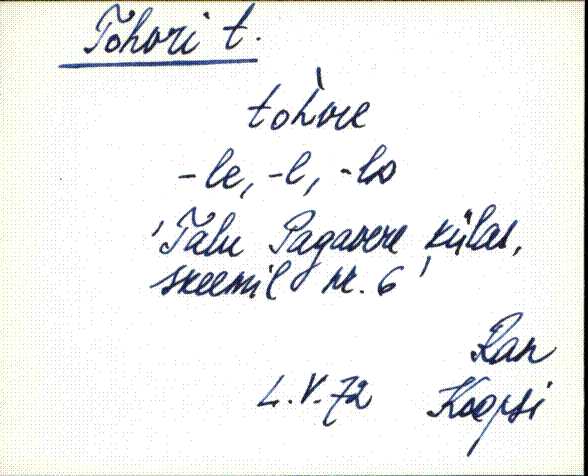 Tohvri t.
toh̀vre
-le, -l, -lo
'Talu Pagavere külas,
skeemil nr. 6'
Ran
L.V.72 Koopsi